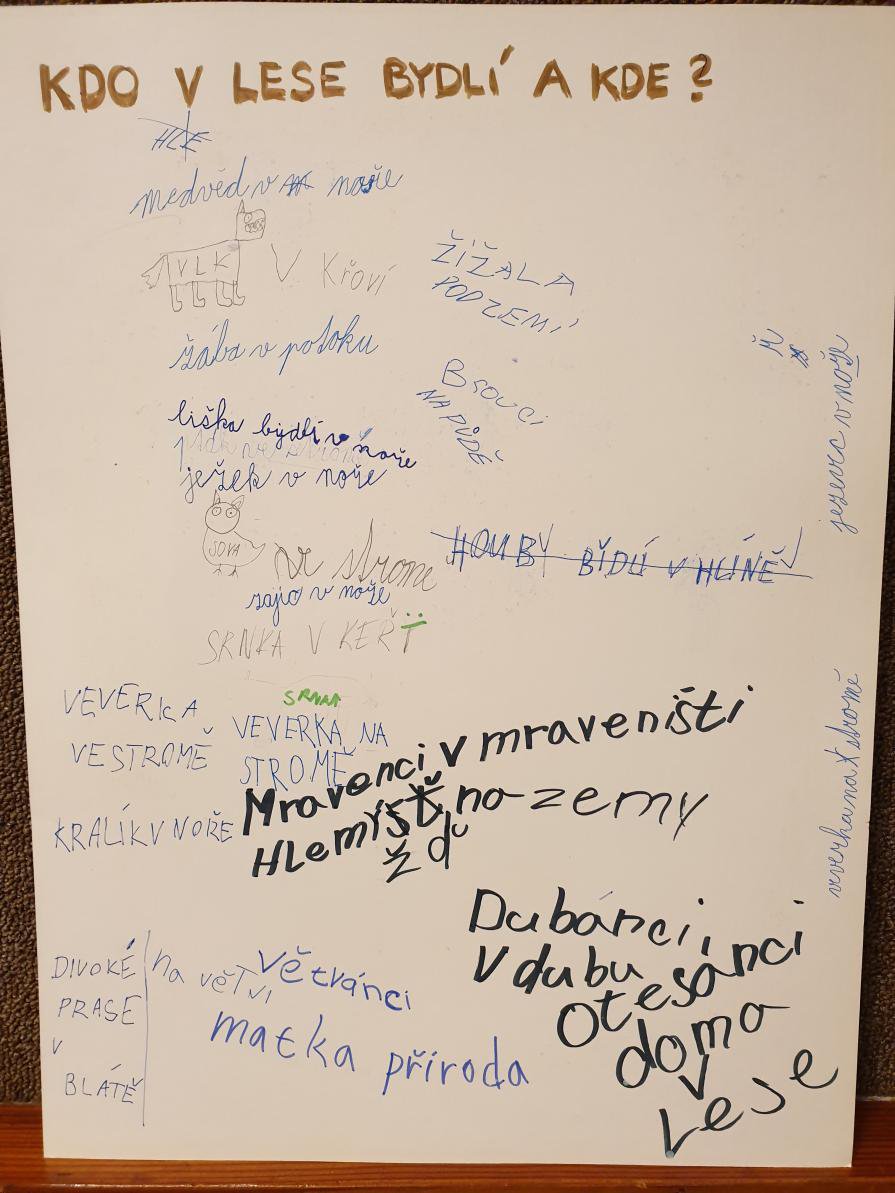 KDO V LESE BYDLÍ A KDE?
HLE
medvěd v noře
VLK V Křoví
ŽÍŽALA
POD ZEMÍ
žába v potoku
BROUCI
NA PŮDĚ
liška bydlí v noře
ježek v noře
SOVA ve strome
zajíc v noře
HOUBY BÍDLÍ V HLÍNĚ
SRNKA V KEŘI
jezevec v noře
VEVERKA
VE STROMĚ
SRNKA
VEVERKA NA
STROMĚ
Mravenci v mraveništi
KRALÍK V NOŘE
HLemýšť na zemy
žď
veverka na stromě
DIVOKÉ
PRASE
V
BLÁTĚ
na větvi větvánci
matka příroda
Dubánci,
V dubu
Otesánci
doma
v
Lese